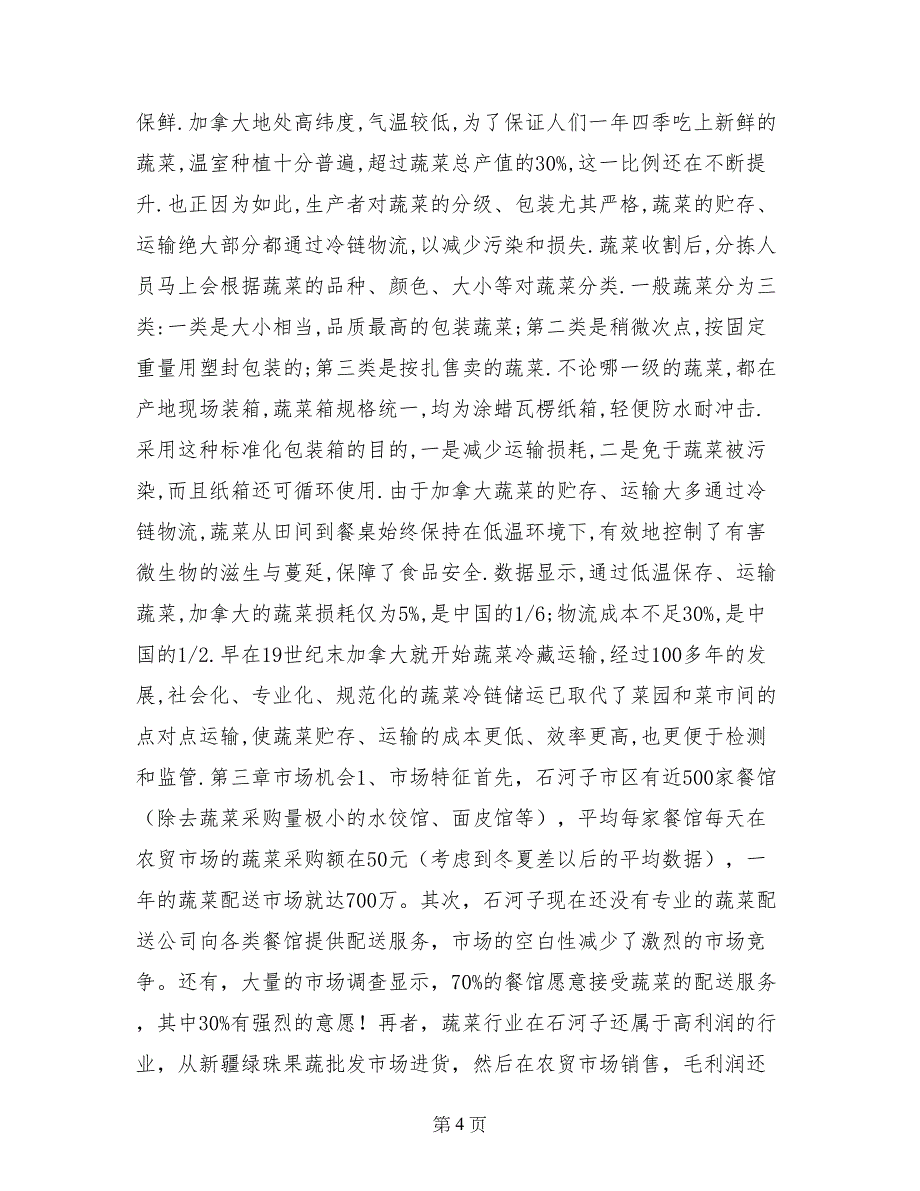 保鲜.加拿大地处高纬度,气温较低,为了保证人们一年四季吃上新鲜的
蔬菜,温室种植十分普遍,超过蔬菜总产值的30%,这一比例还在不断提
升.也正因为如此,生产者对蔬菜的分级、包装尤其严格,蔬菜的贮存、
运输绝大部分都通过冷链物流,以减少污染和损失.蔬菜收割后,分拣人
员马上会根据蔬菜的品种、颜色、大小等对蔬菜分类.一般蔬菜分为三
类:一类是大小相当,品质最高的包装蔬菜;第二类是稍微次点,按固定
重量用塑封包装的;第三类是按扎售卖的蔬菜.不论哪一级的蔬菜,都在
产地现场装箱,蔬菜箱规格统一,均为涂蜡瓦楞纸箱,轻便防水耐冲击.
采用这种标准化包装箱的目的,一是减少运输损耗,二是免于蔬菜被污
染,而且纸箱还可循环使用.由于加拿大蔬菜的贮存、运输大多通过冷
链物流,蔬菜从田间到餐桌始终保持在低温环境下,有效地控制了有害
微生物的滋生与蔓延,保障了食品安全.数据显示,通过低温保存、运输
蔬菜,加拿大的蔬菜损耗仅为5%,是中国的1/6;物流成本不足30%,是中
国的1/2.早在19世纪末加拿大就开始蔬菜冷藏运输,经过100多年的发
展,社会化、专业化、规范化的蔬菜冷链储运已取代了菜园和菜市间的
点对点运输,使蔬菜贮存、运输的成本更低、效率更高,也更便于检测
和监管.第三章市场机会1、市场特征首先，石河子市区有近500家餐馆
（除去蔬菜采购量极小的水饺馆、面皮馆等），平均每家餐馆每天在
农贸市场的蔬菜采购额在50元（考虑到冬夏差以后的平均数据），一
年的蔬菜配送市场就达700万。其次，石河子现在还没有专业的蔬菜配
送公司向各类餐馆提供配送服务，市场的空白性减少了激烈的市场竞
争。还有，大量的市场调查显示，70%的餐馆愿意接受蔬菜的配送服务
，其中30%有强烈的意愿！再者，蔬菜行业在石河子还属于高利润的行
业，从新疆绿珠果蔬批发市场进货，然后在农贸市场销售，毛利润还
第 4 页